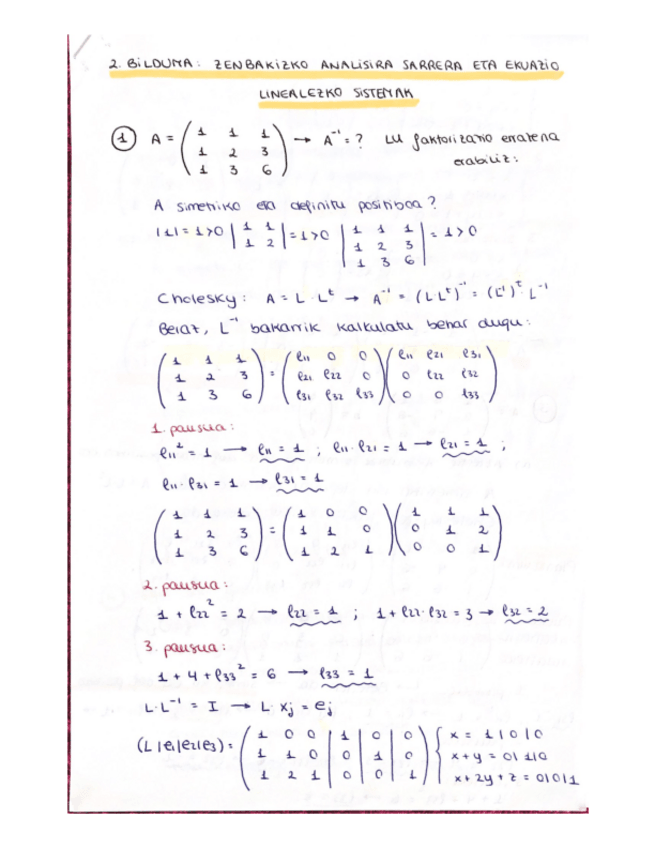 2. BILDUMA: ZENBAKIZKO ANALISIRA SARRERA ETA EKUAZIO
LINEALEZKO SISTEMAK
① A = ( 1 1 1 ; 1 2 3 ; 1 3 6 ) → A⁻¹ = ? LU faktorizazio erratena
erabiliz:
A simetriko eta definitu positiboa?
|1| = 1 > 0 | 1 1 ; 1 2 | = 1 > 0 | 1 1 1 ; 1 2 3 ; 1 3 6 | = 1 > 0
Cholesky: A = L · Lᵗ → A⁻¹ = (L·Lᵗ)⁻¹ = (L⁻¹)ᵗ · L⁻¹
Beraz, L⁻¹ bakarrik kalkulatu behar dugu:
( 1 1 1 ; 1 2 3 ; 1 3 6 ) = ( ℓ11 0 0 ; ℓ21 ℓ22 0 ; ℓ31 ℓ32 ℓ33 ) ( ℓ11 ℓ21 ℓ31 ; 0 ℓ22 ℓ32 ; 0 0 ℓ33 )
1. pausua:
ℓ11² = 1 → ℓ11 = 1 ; ℓ11 · ℓ21 = 1 → ℓ21 = 1 ;
ℓ11 · ℓ31 = 1 → ℓ31 = 1
( 1 1 1 ; 1 2 3 ; 1 3 6 ) = ( 1 0 0 ; 1 1 0 ; 1 2 1 ) ( 1 1 1 ; 0 1 2 ; 0 0 1 )
2. pausua:
1 + ℓ22² = 2 → ℓ22 = 1 ; 1 + ℓ22 · ℓ32 = 3 → ℓ32 = 2
3. pausua:
1 + 4 + ℓ33² = 6 → ℓ33 = 1
L·L⁻¹ = I → L· xj = ej
(L|e1|e2|e3) = ( 1 0 0 | 1 | 0 | 0 ; 1 1 0 | 0 | 1 | 0 ; 1 2 1 | 0 | 0 | 1 ) { x = 1|0|0 ; x+y = 0|1|0 ; x+2y+z = 0|0|1